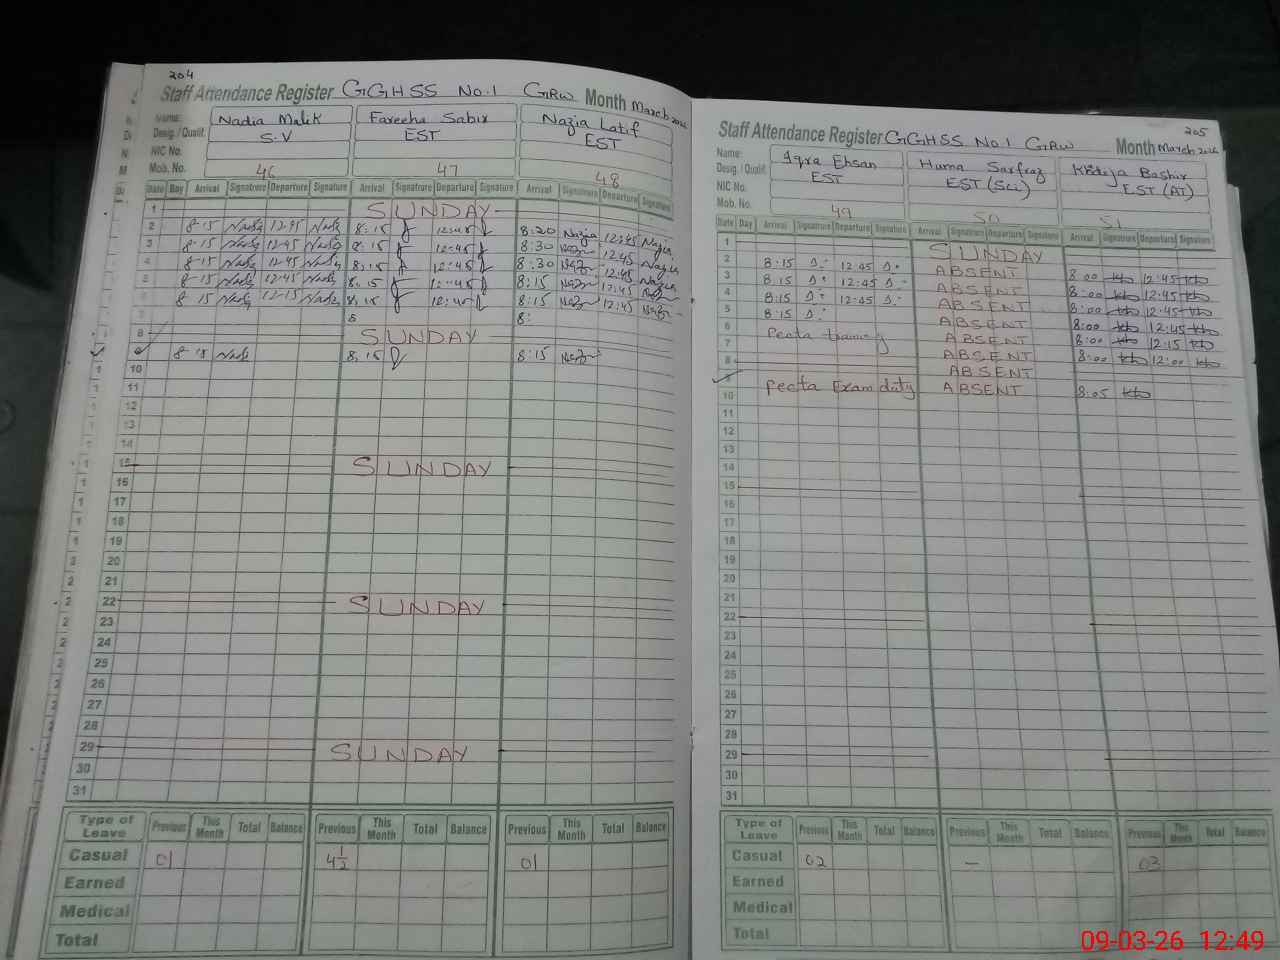 204
Staff Attendance Register GGHSS No.1 GRW Month March 2026
Name: Nadia Malik Fareeha Sabir Nazia Latif
Desig. / Qualif. S.V EST EST
NIC No.
Mob. No. 46 47 48
Date Day Arrival Signature Departure Signature Arrival Signature Departure Signature Arrival Signature Departure Signature
1 SUNDAY
2 8-15 12:45 8:15 12:45 8:20 Nazia 12:45 Nazia
3 8-15 12-45 8:15 12:45 8:30 12:45
4 8-15 12-45 8:15 12:45 8:30 12:45
5 8-15 12:45 8:15 12:45 8:15 12:45
8 15 12-15 8:15 8:15 12:45
8 8:
8 SUNDAY
8-15 8:15 8:15
10
11
12
13
14
15 SUNDAY
16
17
18
19
20
21
22 SUNDAY
23
24
25
26
27
28
29 SUNDAY
30
31
Type of Leave Previous This Month Total Balance Previous This Month Total Balance Previous This Month Total Balance
Casual 01 4½ 01
Earned
Medical
Total
205
Staff Attendance Register GGHSS No.1 GRW Month March 2026
Name: Iqra Ehsan Huma Sarfraz Khdija Bashir
Desig. / Qualif. EST EST (Sci) EST (AT)
NIC No.
Mob. No. 49 50 51
Date Day Arrival Signature Departure Signature Arrival Signature Departure Signature Arrival Signature Departure Signature
1 SUNDAY
2 8-15 12:45 ABSENT 8:00 12:45
3 8.15 12:45 ABSENT 8:00 12:45
4 8:15 12:45 ABSENT 8:00 12:45
5 8:15 ABSENT 8:00 12:45
6 Pecta training ABSENT 8:00 12:15
7 ABSENT 8:00 12:00
8 ABSENT
9 Pecta Exam duty ABSENT 8:05
10
11
12
13
14
15
16
17
18
19
20
21
22
23
24
25
26
27
28
29
30
31
Type of Leave Previous This Month Total Balance Previous This Month Total Balance Previous This Month Total Balance
Casual 02 — 03
Earned
Medical
Total
09-03-26 12:49